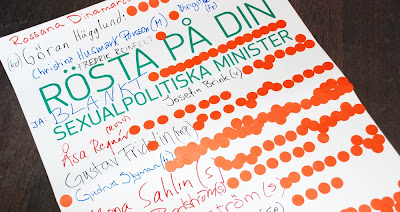 Rossana Dinamarca
Birgitta
(kd) Göran Hägglund:
Christine Husmark Persson (M)
FREDRIK REINFELDT
RÖSTA PÅ DIN
JA: BLANKT
SEXUALPOLITISKA MINISTER
Josefin Brink (v)
Åsa Regnér
Gustav Fridolin (mp)
Gudrun Schyman (fi)
Mona Sahlin (s)